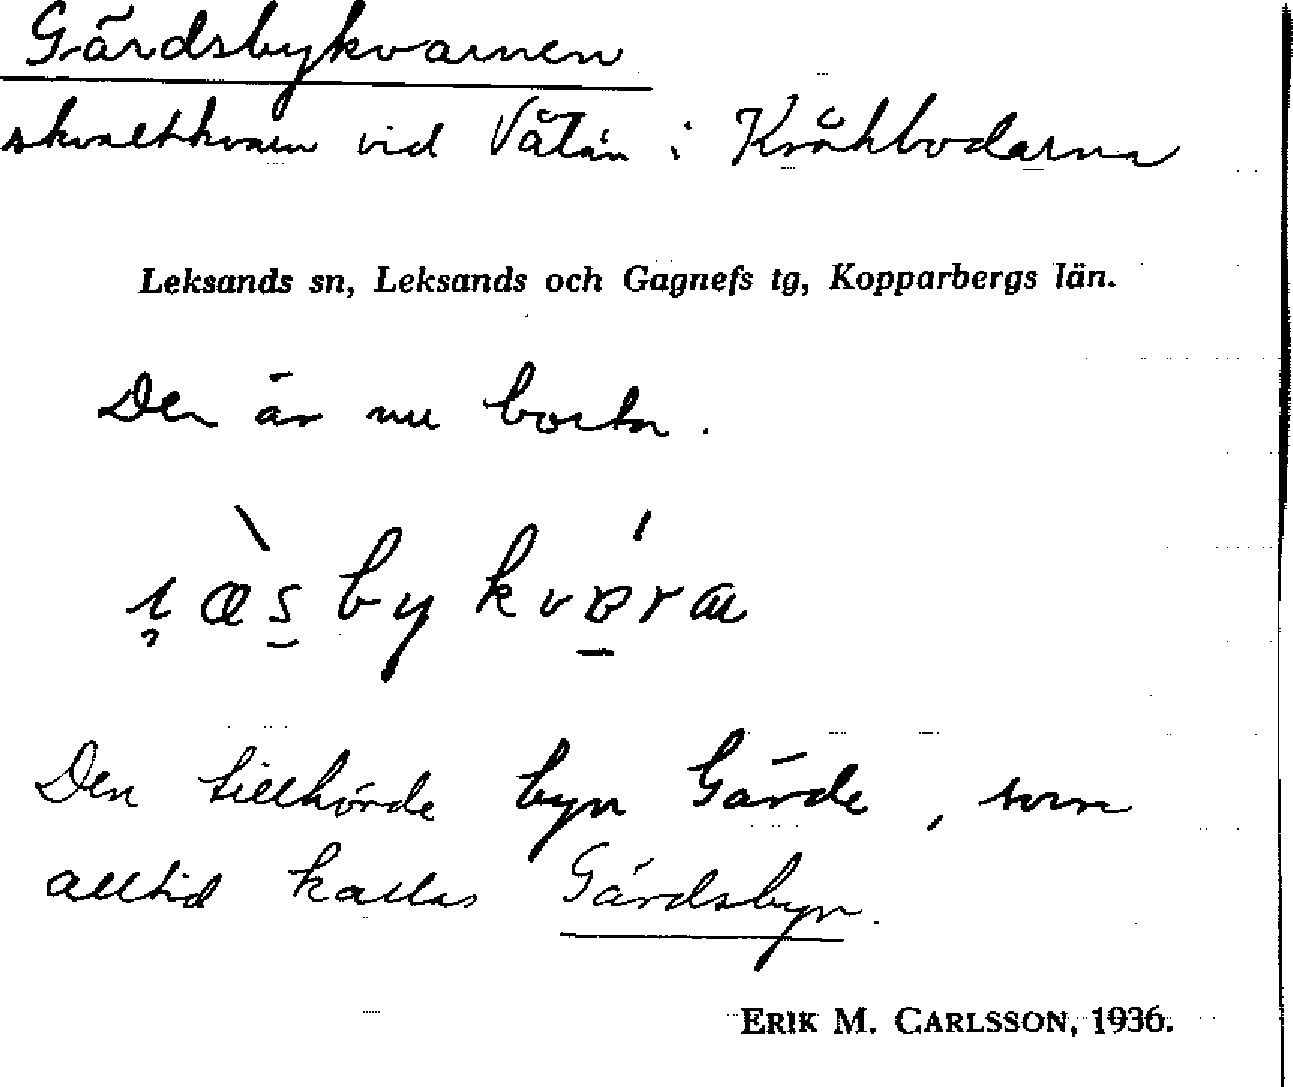 Gärdsbykvarnen
skvaltkvarn vid Våtån i Kråkbodarna
Leksands sn, Leksands och Gagnefs tg, Kopparbergs län.
Den är nu borta.
Den tillhörde byn Gärde, som
alltid kallas Gärdsbyn.
ERIK M. CARLSSON, 1936.